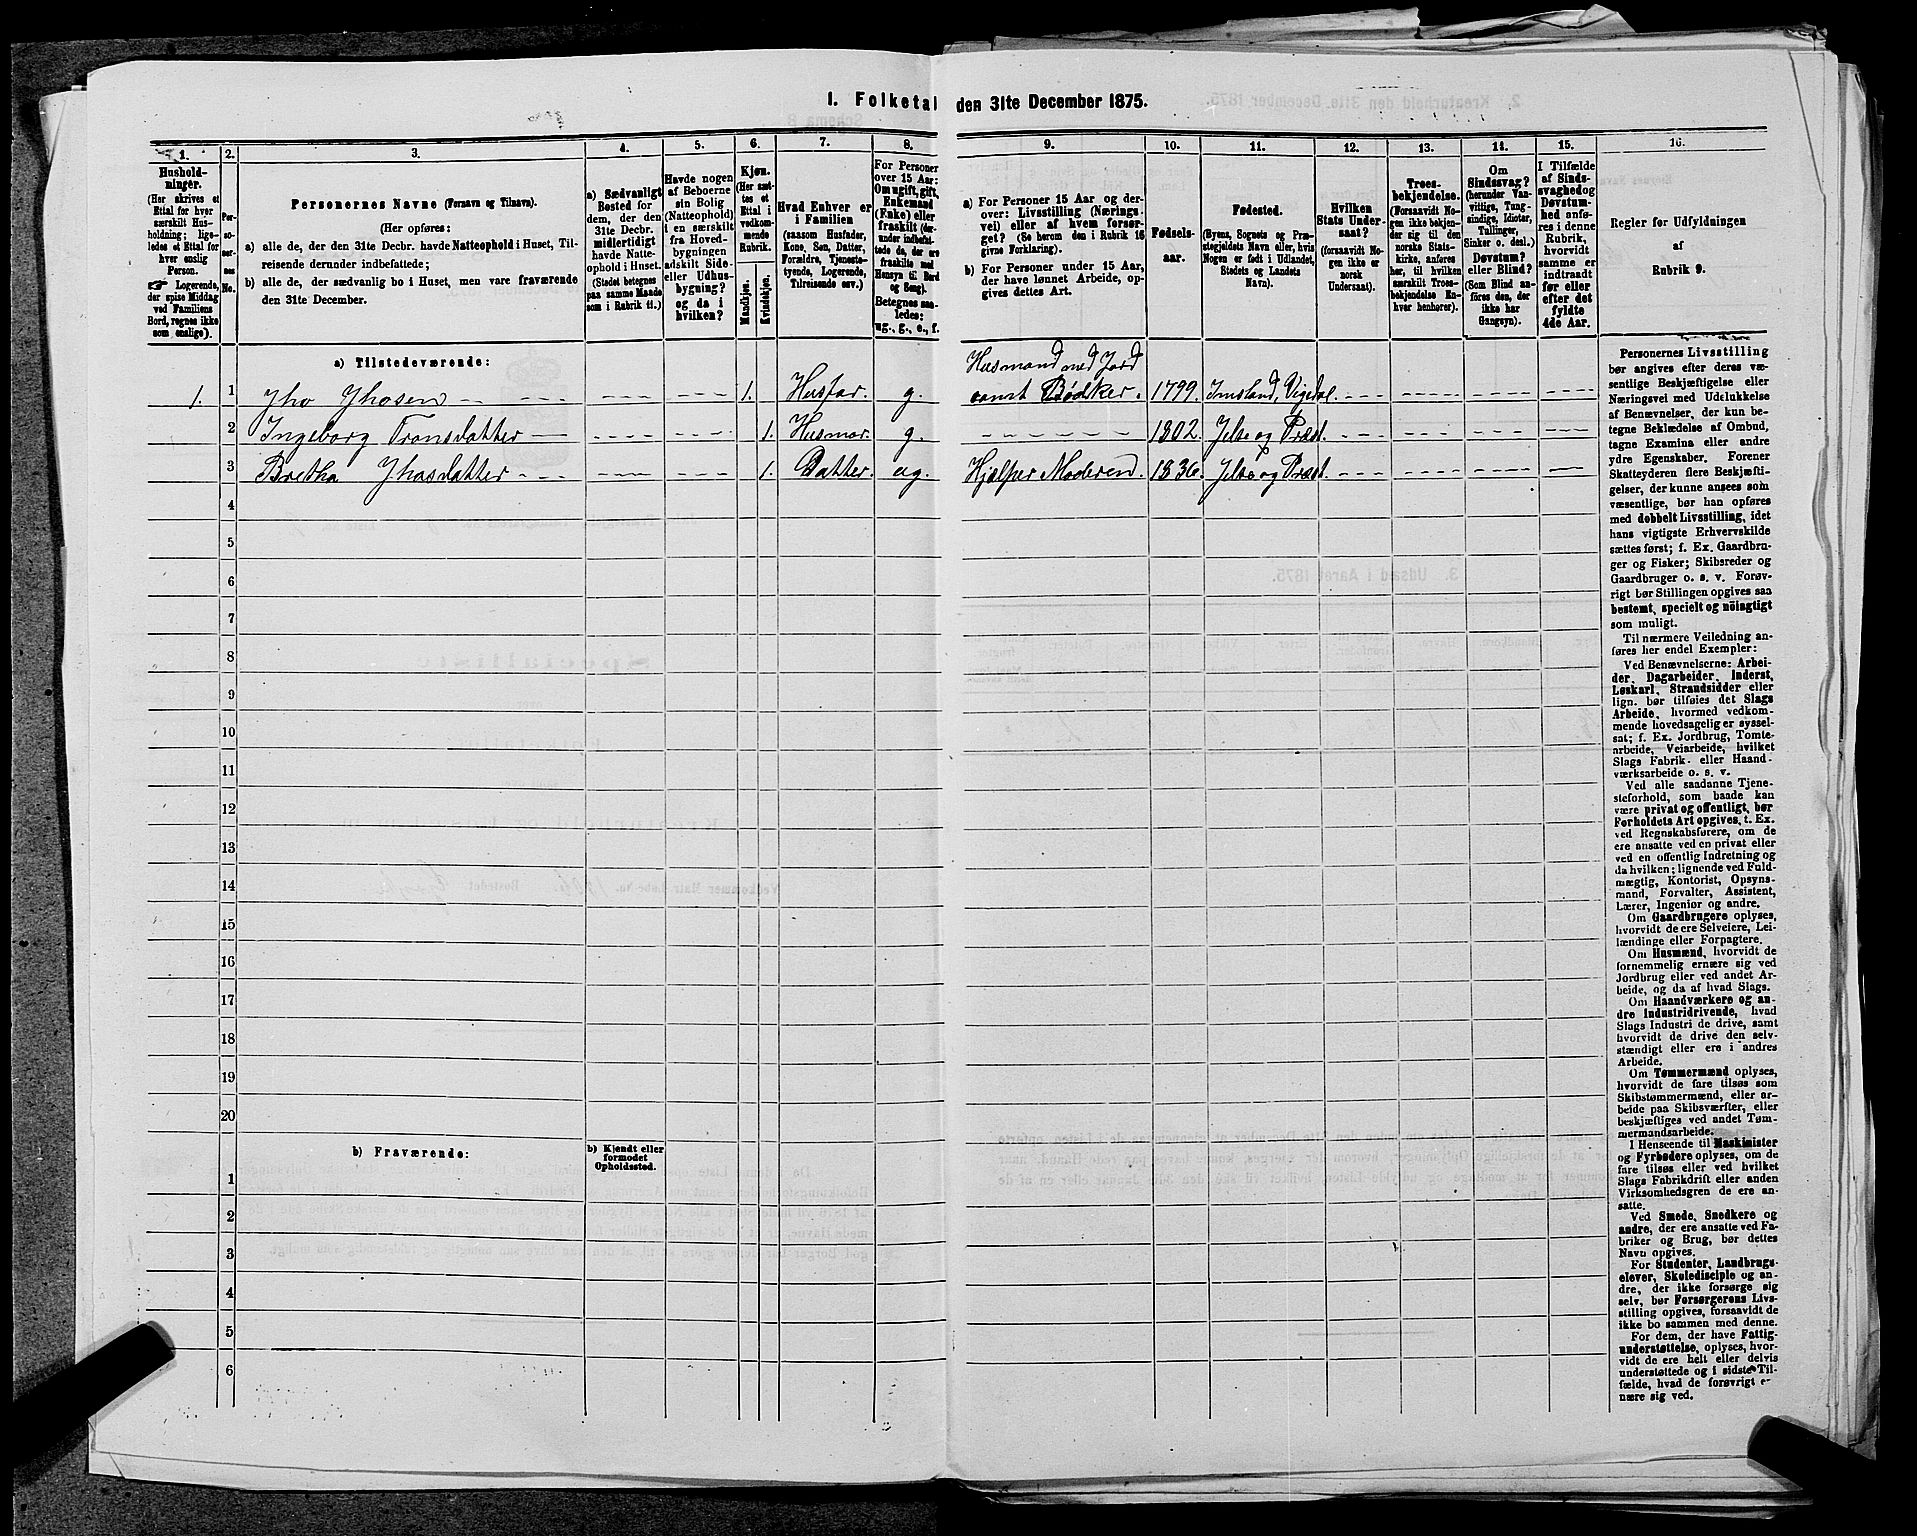 1. Folketal den 31te December 1875.
1.
2.
3.
4.
5.
6.
7.
8.
9.
10.
11.
12.
13.
14.
15.
16.
Hushold-
ninger.
(Her skrives et
Ettal for hver
særskilt Hus-
holdning; lige-
ledes et Ettal for
hver enslig
Person.
☞ Logerende,
der spise Middag
ved Familiens
Bord, regnes ikke
som enslige).
Per-
so-
ner-
nes
No.
Personernes Navne (Fornavn og Tilnavn).
(Her opføres:
a) alle de, der den 31te Decbr. havde Natteophold i Huset, Til-
reisende derunder indbefattede;
b) alle de, der sædvanlig bo i Huset, men vare fraværende
den 31te December.
a) Sædvanligt
Bosted for
dem, der den
31te Decbr.
midlertidigt
havde Natte-
ophold i Huset.
(Stedet betegnes
paa samme Maade
som i Rubrik 11.)
Havde nogen
af Beboerne
sin Bolig
(Natteophold)
i en særskilt
fra Hoved-
bygningen
adskilt Side-
eller Udhus-
bygning?
og da i
hvilken?
Kjøn.
(Her sæt-
tes et
Ettal i
vedkom-
mende
Rubrik.
Mandkjøn.
Kvindekjøn.
Hvad Enhver er
i Familien
(saasom Husfader,
Kone, Søn, Datter,
Forældre, Tjeneste-
tyende, Logerende,
Tilreisende osv.)
For Personer
over 15 Aar:
Om ugift, gift,
Enkemand
(Enke) eller
fraskilt (der-
under indbefat-
tede de, der ere
fraskilte med
Hensyn til Bord
og Seng).
Betegnes saa-
ledes:
ug., g., e., f.
a) For Personer 15 Aar og der-
over: Livsstilling (Nærings-
vei) eller af hvem forsør-
get? (Se herom den i Rubrik 16
givne Forklaring).
b) For Personer under 15 Aar,
der have lønnet Arbeide, op-
gives dettes Art.
Fødsels-
aar.
Fødested.
(Byens, Sognets og Præ-
stegjeldets Navn eller, hvis
Nogen er født i Udlandet,
Stedets og Landets
Navn).
Hvilken
Stats Under-
saat?
(forsaavidt No-
gen ikke er
norsk
Undersaat).
Troes-
bekjendelse.
(Forsaavidt No-
gen ikke bekjen-
der sig til den
norske Stats-
kirke, anføres
her, til hvilken
særskilt Troes-
bekjendelse En-
hver henhører).
Om
Sindssvag?
(herunder Van-
vittige, Tung-
sindige, Idioter,
Tullinger,
Sinker o. desl.)
Døvstum?
eller Blind?
(Som Blind an-
føres den, der
ikke har
Gangsyn).
I Tilfælde
af Sinds-
svaghed og
Døvstum-
hed anfø-
res i denne
Rubrik,
hvorvidt
samme er
indtraadt
før eller
efter det
fyldte
4de Aar.
Regler før Udfyldningen
af
Rubrik 9.
a) Tilstedeværende:
1. 1 Jho Jhosen 1. Husfar. g. Husmand med Jord
samt Bødker. 1799. Imsland, Vigedal.
2 Ingeborg Tronsdatter 1. Husmor. g. 1802. Jelse og Præst.
3 Bretha Jhosdatter 1. Datter. ug. Hjælper Moderen. 1836. Jelse og Præst.
4
5
6
7
8
9
10
11
12
13
14
15
16
17
18
19
20
b) Fraværende:
b) Kjendt eller
formodet
Opholdssted.
1
2
3
4
5
6
Personernes Livsstilling
bør angives efter deres væ-
sentlige Beskjæftigelse eller
Næringsvei med Udelukkelse
af Benævnelser, der kun be-
tegne Beklædelse af Ombud,
tagne Examina eller andre
ydre Egenskaber. Forener
Skatteyderen flere Beskjæfti-
gelser, der kunne ansees som
væsentlige, bør han opføres
med dobbelt Livsstilling, idet
hans vigtigste Erhvervskilde
sættes først; f. Ex. Gaardbru-
ger og Fisker; Skibsreder og
Gaardbruger o. s. v. Forøv-
rigt bør Stillingen opgives saa
bestemt, specielt og nöiagtigt
som muligt.
Til nærmere Veiledning an-
føres her endel Exempler:
Ved Benævnelserne: Arbei-
der, Dagarbeider, Inderst,
Løskarl, Strandsidder eller
lign. bør tilføies det Slags
Arbeide, hvormed vedkom-
mende hovedsagelig er syssel-
sat; f. Ex. Jordbrug, Tomte-
arbeide, Veiarbeide, hvilket
Slags Fabrik- eller Haand-
værksarbeide o. s. v.
Ved alle saadanne Tjene-
steforhold, som baade kan
være privat og offentligt, bør
Forholdets Art opgives, t. Ex.
ved Regnskabsførere, om de
ere ansatte ved en privat eller
ved en offentlig Indretning og
da hvilken; lignende ved Fuld-
mægtig, Kontorist, Opsyns-
mand, Forvalter, Assistent,
Lærer, Ingeniør og andre.
Om Gaardbrugere oplyses,
hvorvidt de ere Selveiere, Lei-
lændinge eller Forpagtere.
Om Husmænd, hvorvidt de
fornemmelig ernære sig ved
Jordbrug eller ved andet Ar-
beide, og da af hvad Slags.
Om Haandværkere og an-
dre Industridrivende, hvad
Slags Industri de drive, samt
hvorvidt de drive den selv-
stændigt eller ere i andres
Arbeide.
Om Tømmermænd oplyses,
hvorvidt de fare tilsøs som
Skibstømmermænd, eller ar-
beide paa Skibsværfter, eller
beskjæftiges ved andet Tøm-
mermandsarbeide.
I Henseende til Maskinister
og Fyrbødere oplyses, om de
fare tilsøs eller ved hvilket
Slags Fabrikdrift eller anden
Virksomhedsgren de ere an-
satte.
Ved Smede, Snedkere og
andre, der ere ansatte ved Fa-
briker og Brug, bør dettes
Navn opgives.
For Studenter, Landbrugs-
elever, Skoledisciple og an-
dre, der ikke forsørge sig
selv, bør Forsørgerens Livs-
stilling opgives, forsaavidt de
ikke bo sammen med denne.
For dem, der have Fattig-
understøttelse, oplyses, hvor-
vidt de ere helt eller delvis
understøttede og i sidste Til-
fælde, hvad de forøvrigt er-
nære sig ved.